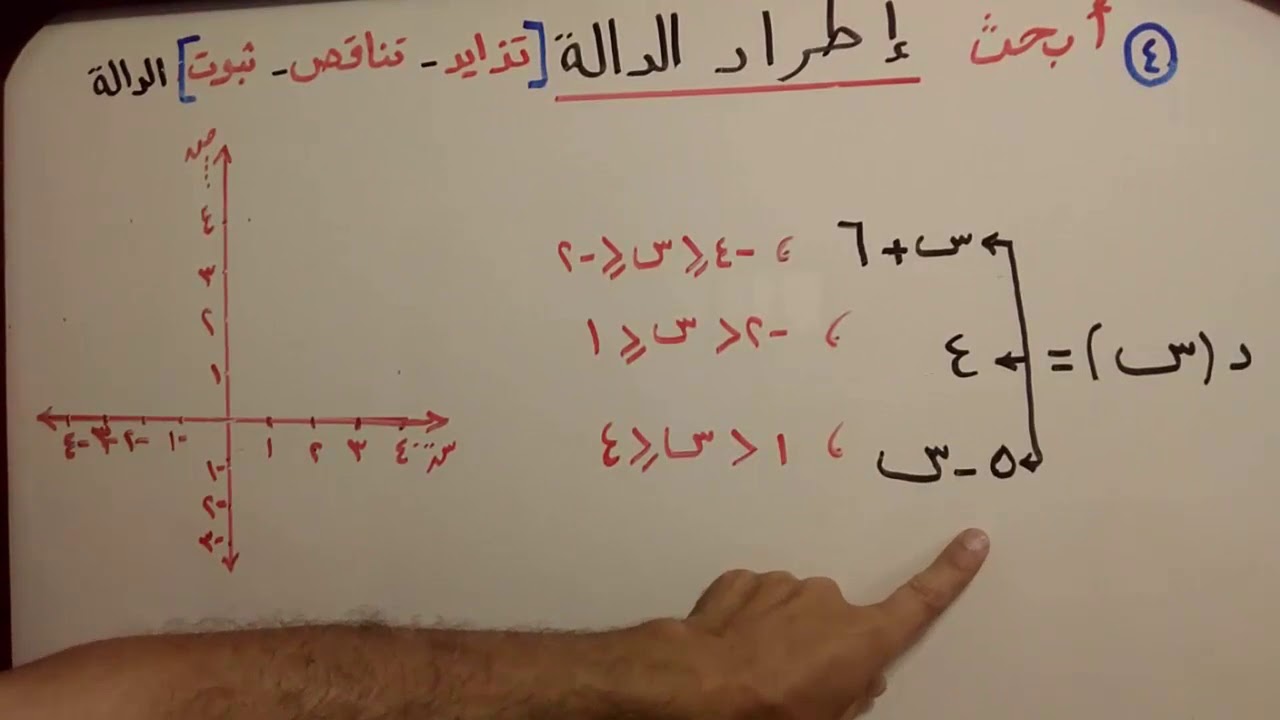 ٤ أبحث إطراد الدالة [تزايد - تناقص - ثبوت] الدالة
س + ٦ ، -٤ ≤ س ≤ -٢
د (س) = ٤ ، -٢ < س ≤ ١
٥ - س ، ١ < س ≤ ٤
ص
٤
٣
٢
١
-٤ -٣ -٢ -١ ١ ٢ ٣ ٤ س
-١
-٢
-٣